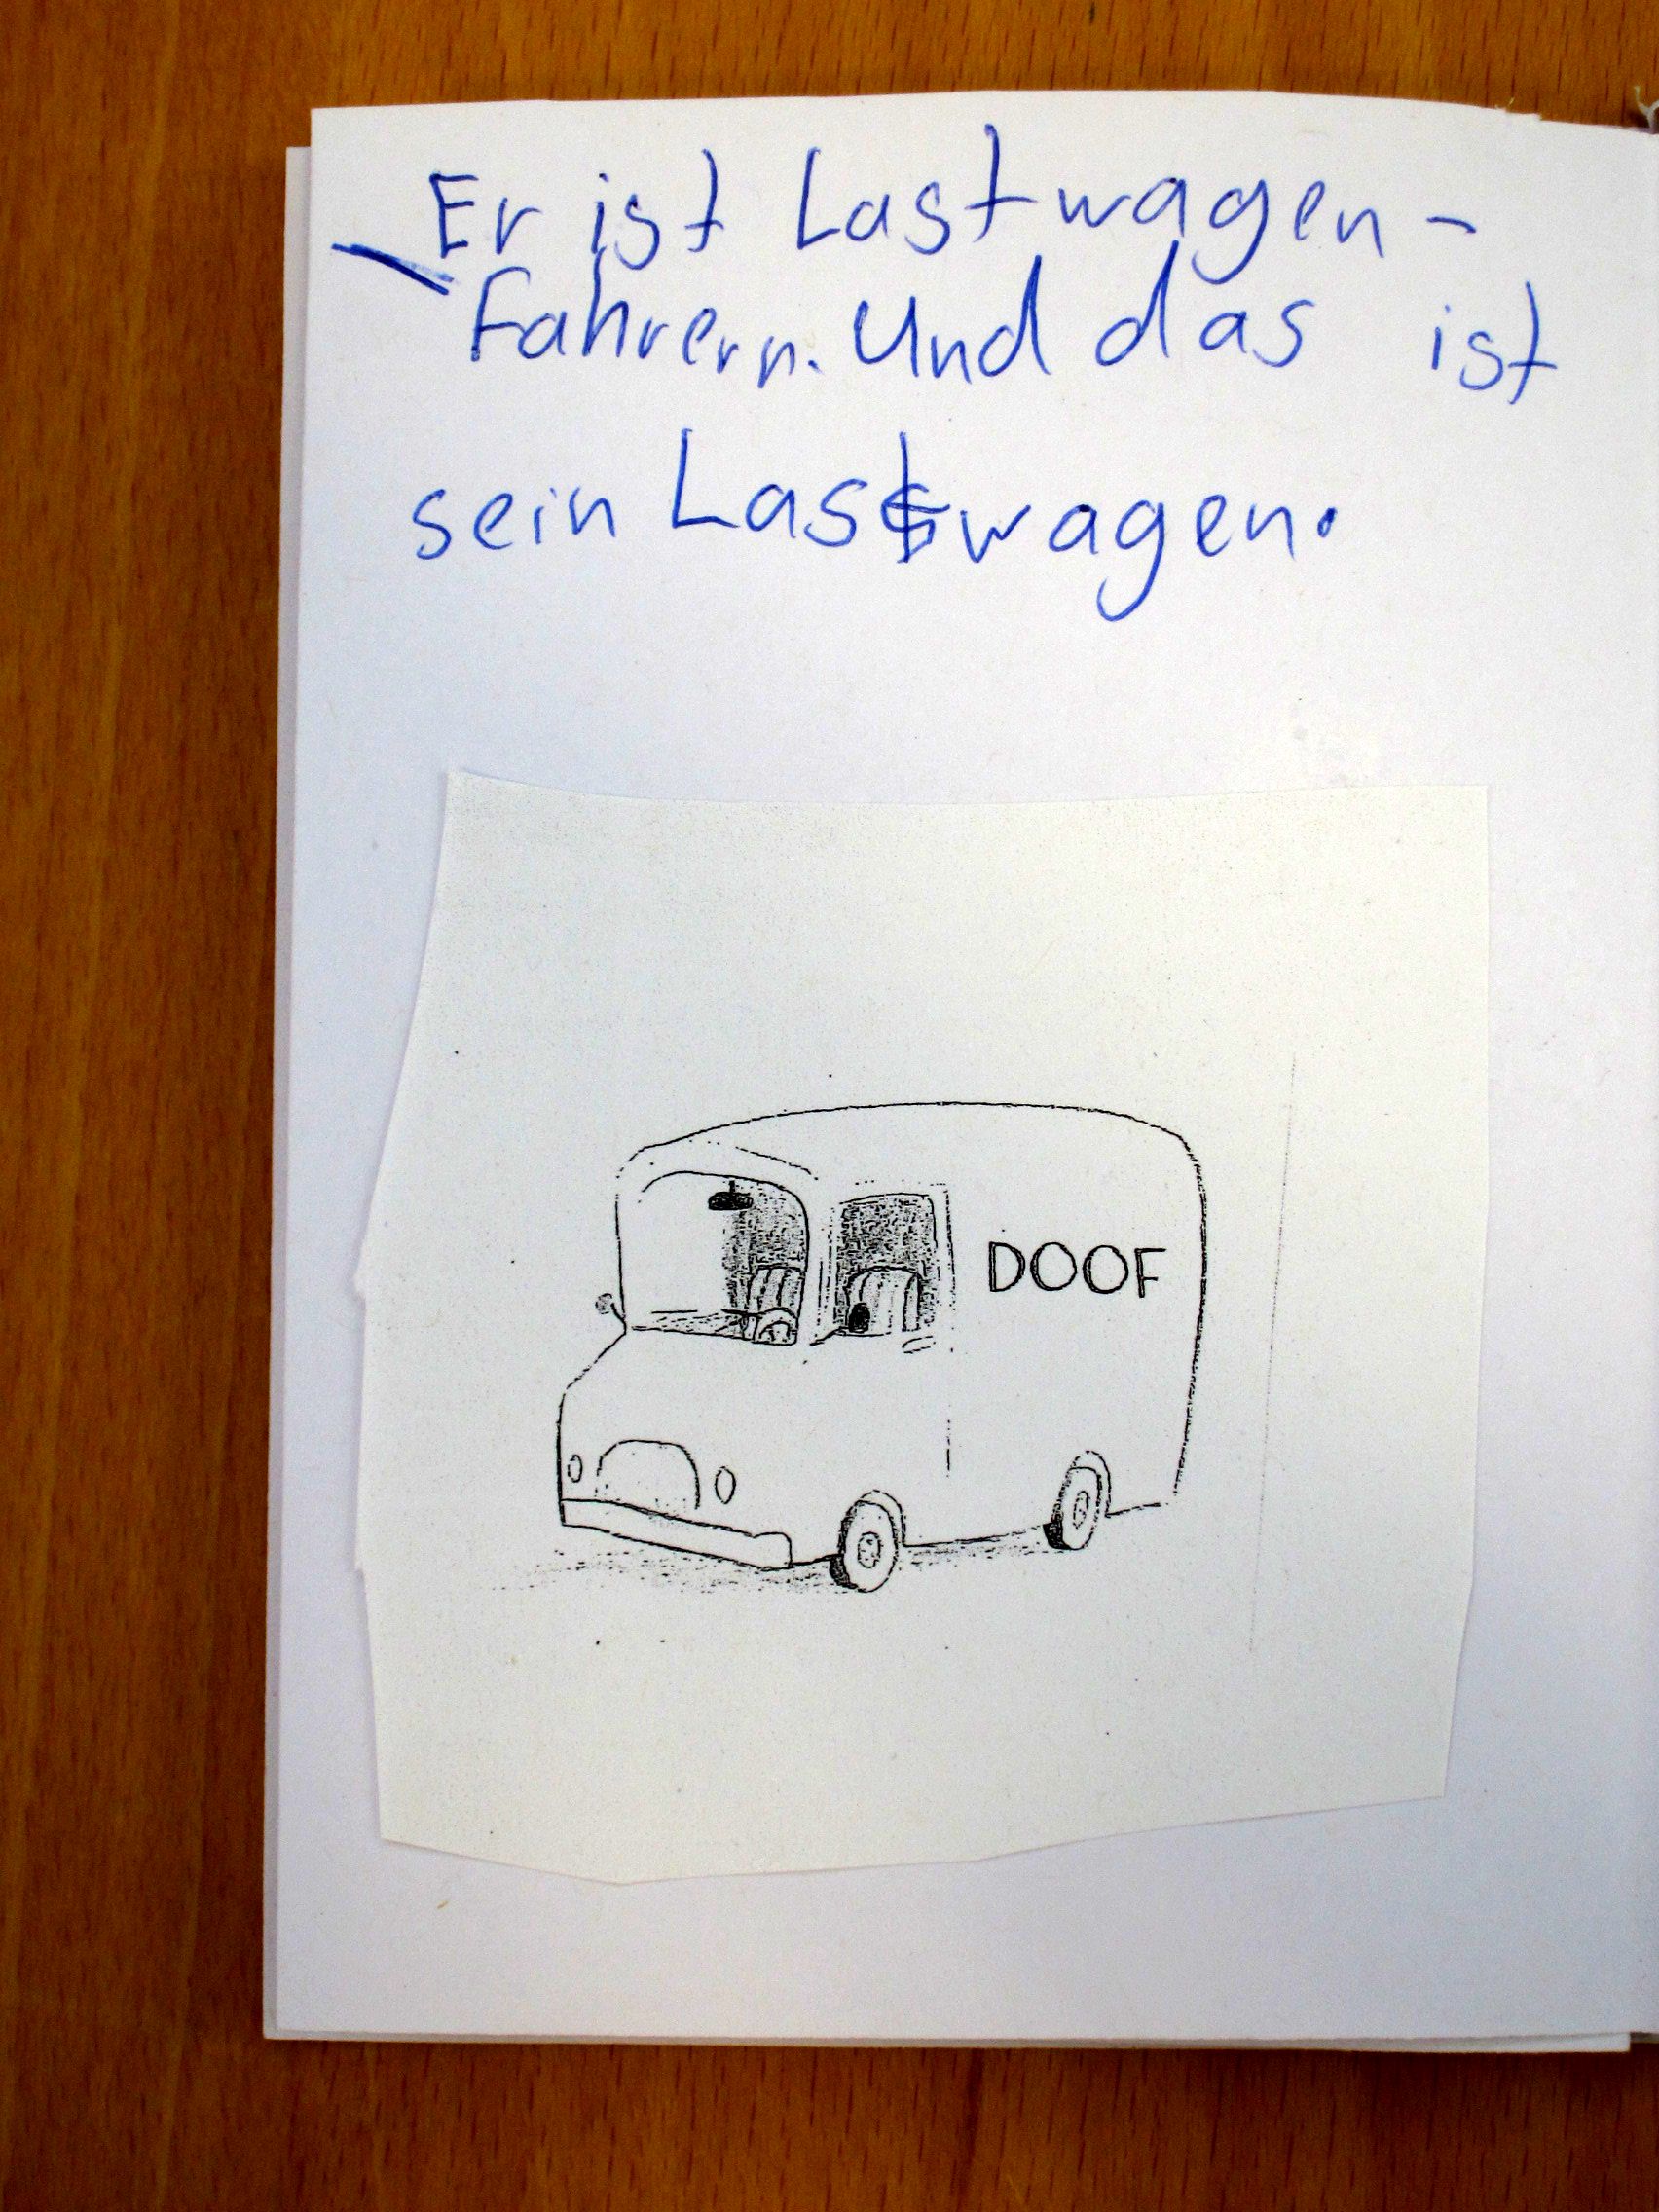 Er ist Lastwagen-
fahrern. Und das ist
sein Lastwagen.
DOOF